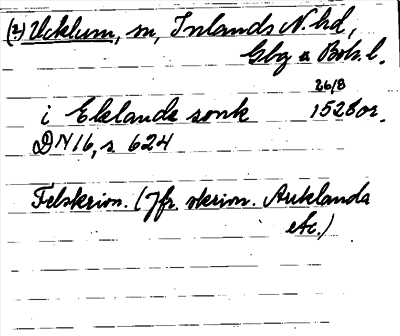 (2) Ucklum, sn, Inlands N. hd,
Gbg o Boh. l.
26/8
i Eklanda sonk 1528 or.
DN 16, s. 624
Felskrivn. (Jfr. skrivn. Auklanda
etc.)